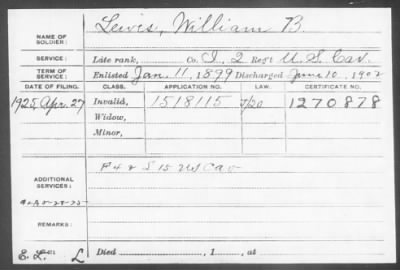 Lewis, William B.
NAME OF SOLDIER:
SERVICE: Late rank, Co. I, 2 Reg't U.S. Cav.
TERM OF SERVICE: Enlisted Jan. 11, 1899 Discharged June 10, 1902
DATE OF FILING. CLASS. APPLICATION NO. LAW. CERTIFICATE NO.
1925, Apr. 27 Invalid, 1518115 1270878
Widow,
Minor,
ADDITIONAL SERVICES: F 4 & S 15 US Cav
REMARKS:
Died , 1 , at